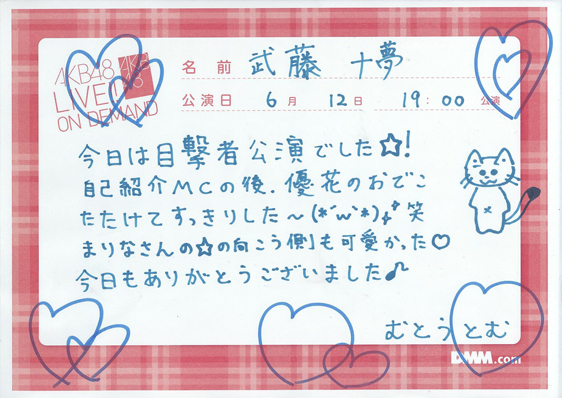 AKB48
LIVE!!
ON DEMAND
AKB
48
名前 武藤 十夢
公演日 6月 12日 19:00 公演
今日は目撃者公演でした☆!
自己紹介MCの後、優花のおでこ
たたけてすっきりした〜(*´w`*)♪笑
まりなさんの☆の向こう側も可愛かった♡
今日もありがとうございました♪
むとうとむ
DMM.com